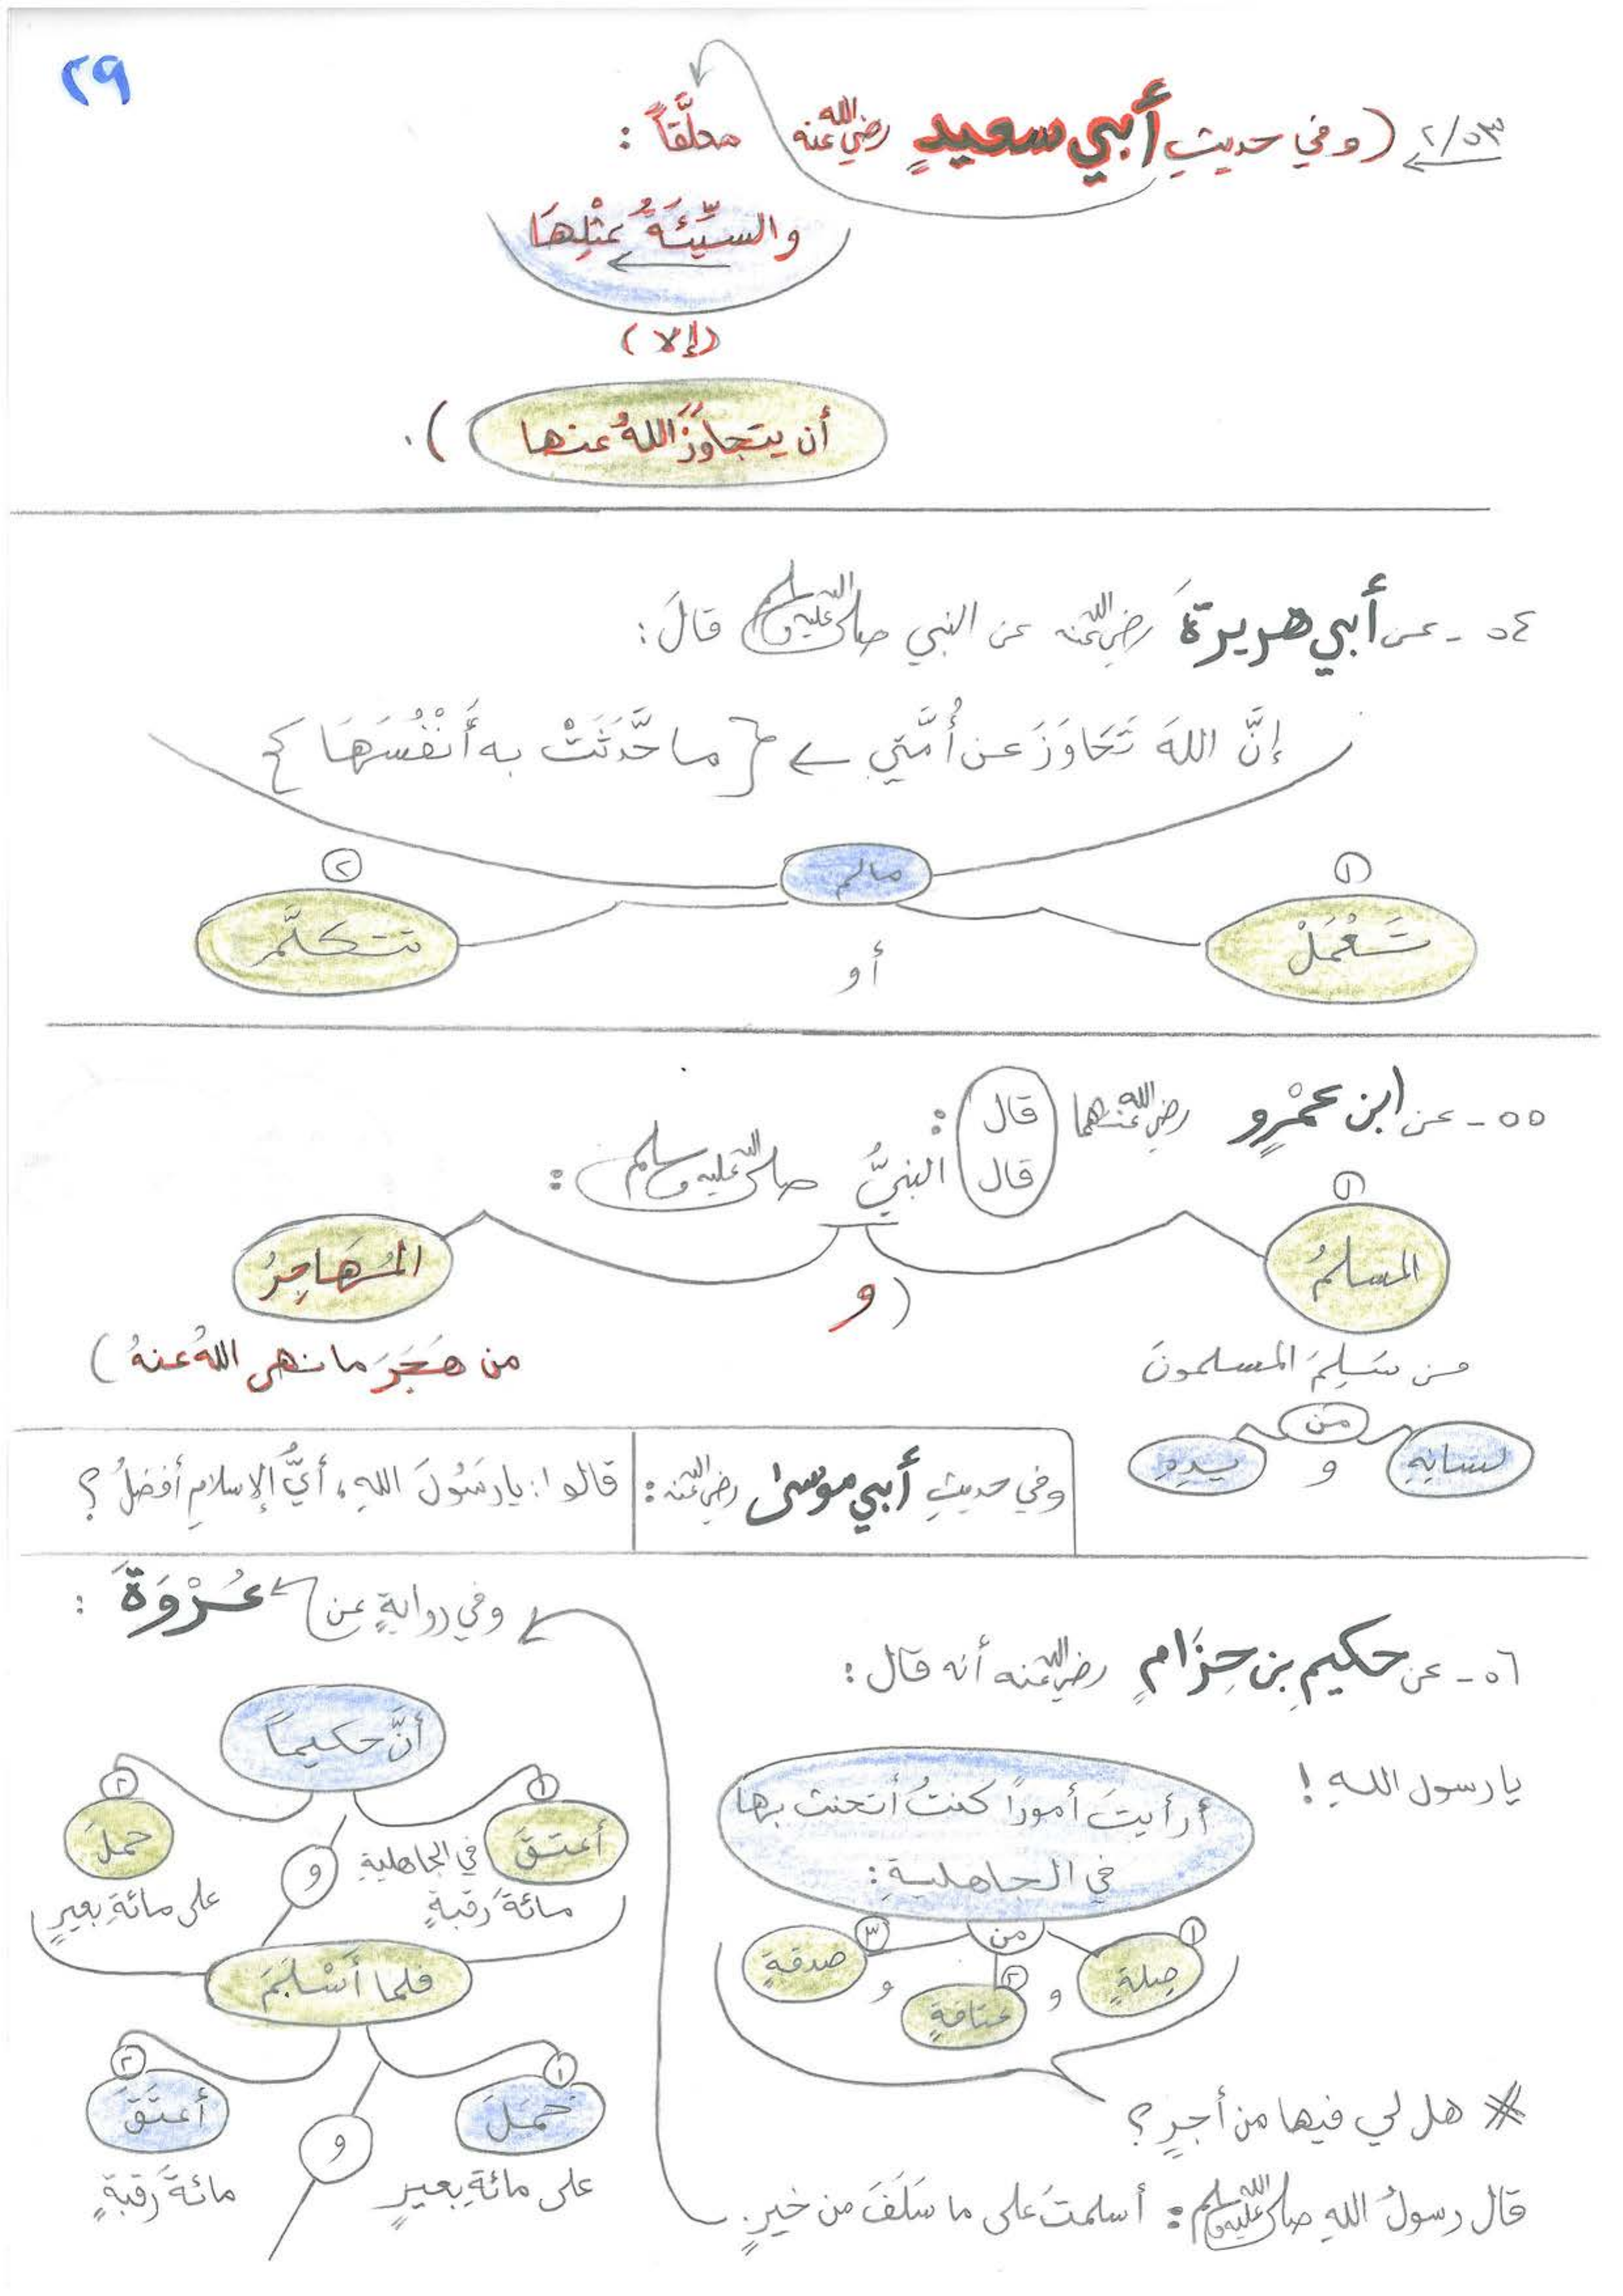 ٢٩
٢/٥٣ (وفي حديثِ أبي سعيدٍ رضي الله عنه معلَّقاً :
والسيِّئَةُ بمثْلِهَا
(إلا)
أن يتجاوزَ اللهُ عنها ).
٥٤ - عن أبي هريرةَ رضي الله عنه عن النبي صلى الله عليه وسلم قالَ :
إنَّ اللهَ تَجَاوَزَ عن أُمَّتِي ← { ما حَدَّثَتْ به أَنْفُسَهَا }
مالم
١ ٢
تَعْمَلْ أو تتكلَّم
٥٥ - عن ابن عمْرٍو رضي الله عنهما قال :
قال النبيُّ صلى الله عليه وسلم :
١
المسلمُ (و المُهَاجِرُ
من سَلِمَ المسلمونَ من هَجَرَ ما نهى اللهُ عنهُ )
من
لسانِهِ و يدِهِ
وفي حديثِ أبي موسى رضي الله عنه : قالوا : يا رَسُولَ اللهِ، أيُّ الإسلامِ أفضلُ ؟
٥٦ - عن حكيمِ بن حِزَامٍ رضي الله عنه أنه قال :
يا رسول اللهِ !
أرأيتَ أموراً كنتُ أتحنث بها
في الجاهليةِ :
من
١ صِلةٍ و ٢ عتاقةٍ و ٣ صدقةٍ
* هل لي فيها من أجرٍ ؟
قال رسولُ اللهِ صلى الله عليه وسلم : أسلمتَ على ما سَلَفَ من خيرٍ .
وفي روايةٍ عن عُرْوَةَ :
أنَّ حكيماً
١ ٢
أعتقَ في الجاهليةِ و حملَ
مائةَ رقبةٍ على مائةِ بعيرٍ
فلما أَسْلَمَ
١ ٢
حَمَلَ و أعتَقَ
على مائةِ بعيرٍ مائةَ رقبةٍ